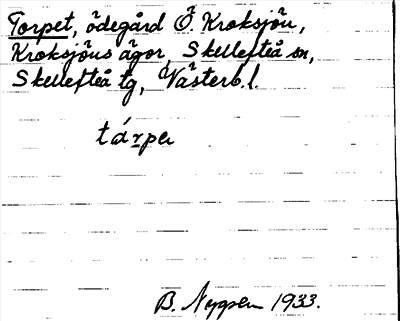 Torpet, ödegård Ö. Kroksjön,
Kroksjöns ägor, Skellefteå sn,
Skellefteå tg, Västerb. l.
tárpeɩ
B. Nygren 1933.